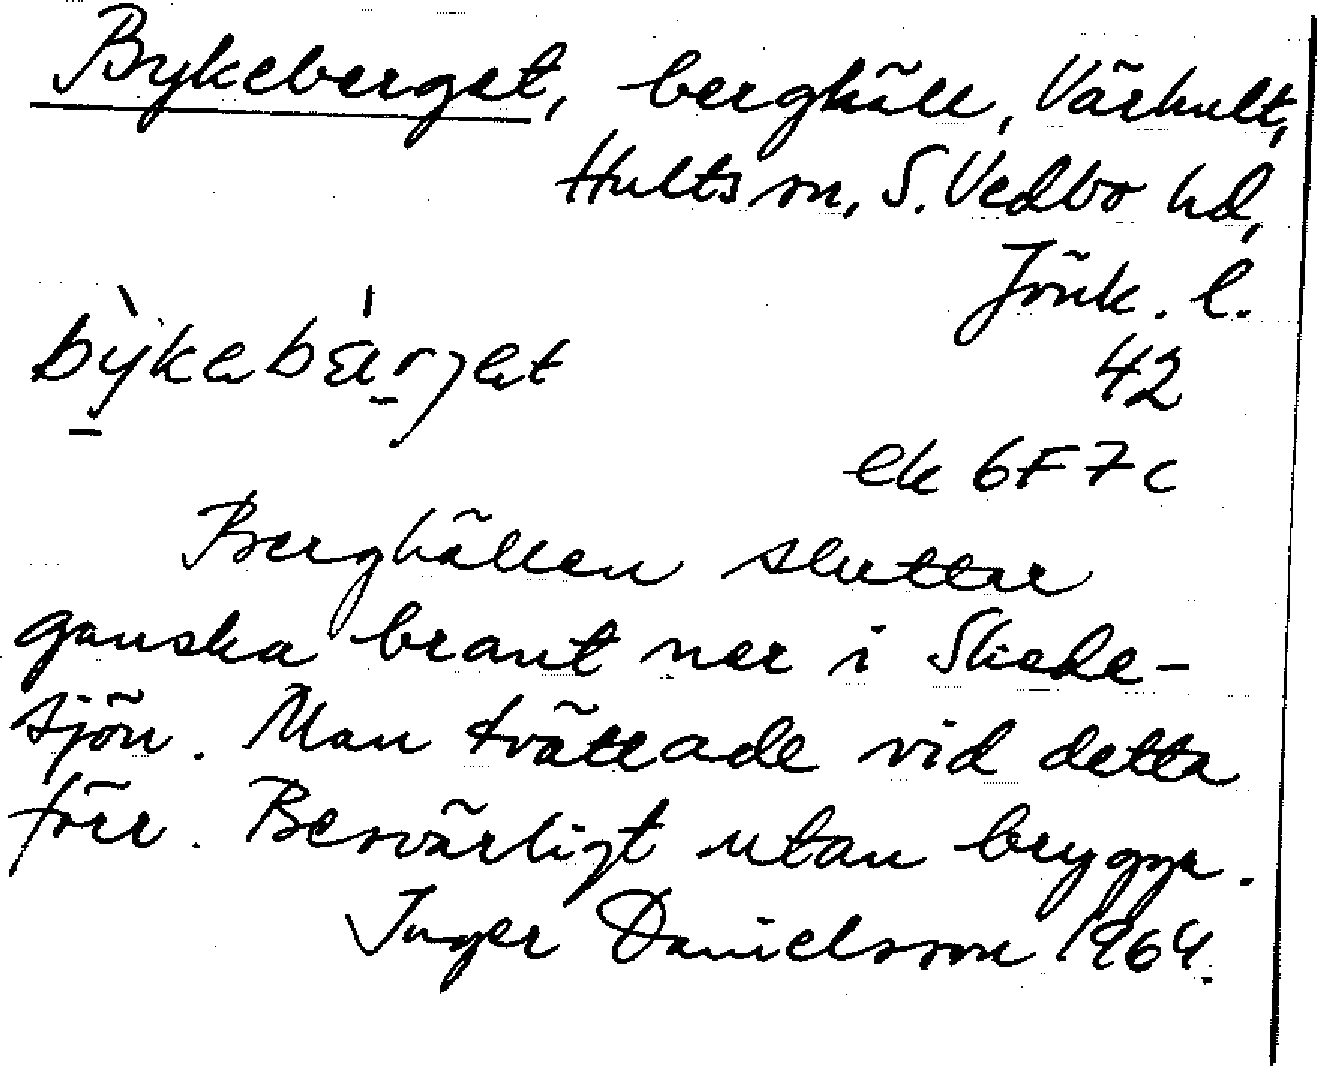 Bykeberget, berghäll, Värhult,
Hults sn, S. Vedbo hd,
Jönk. l.
bỳkebǽrjet
42
ek 6F7c
Berghällen sluttar
ganska brant ner i Skede-
sjön. Man tvättade vid detta
förr. Besvärligt utan brygga.
Inger Danielsson 1964.